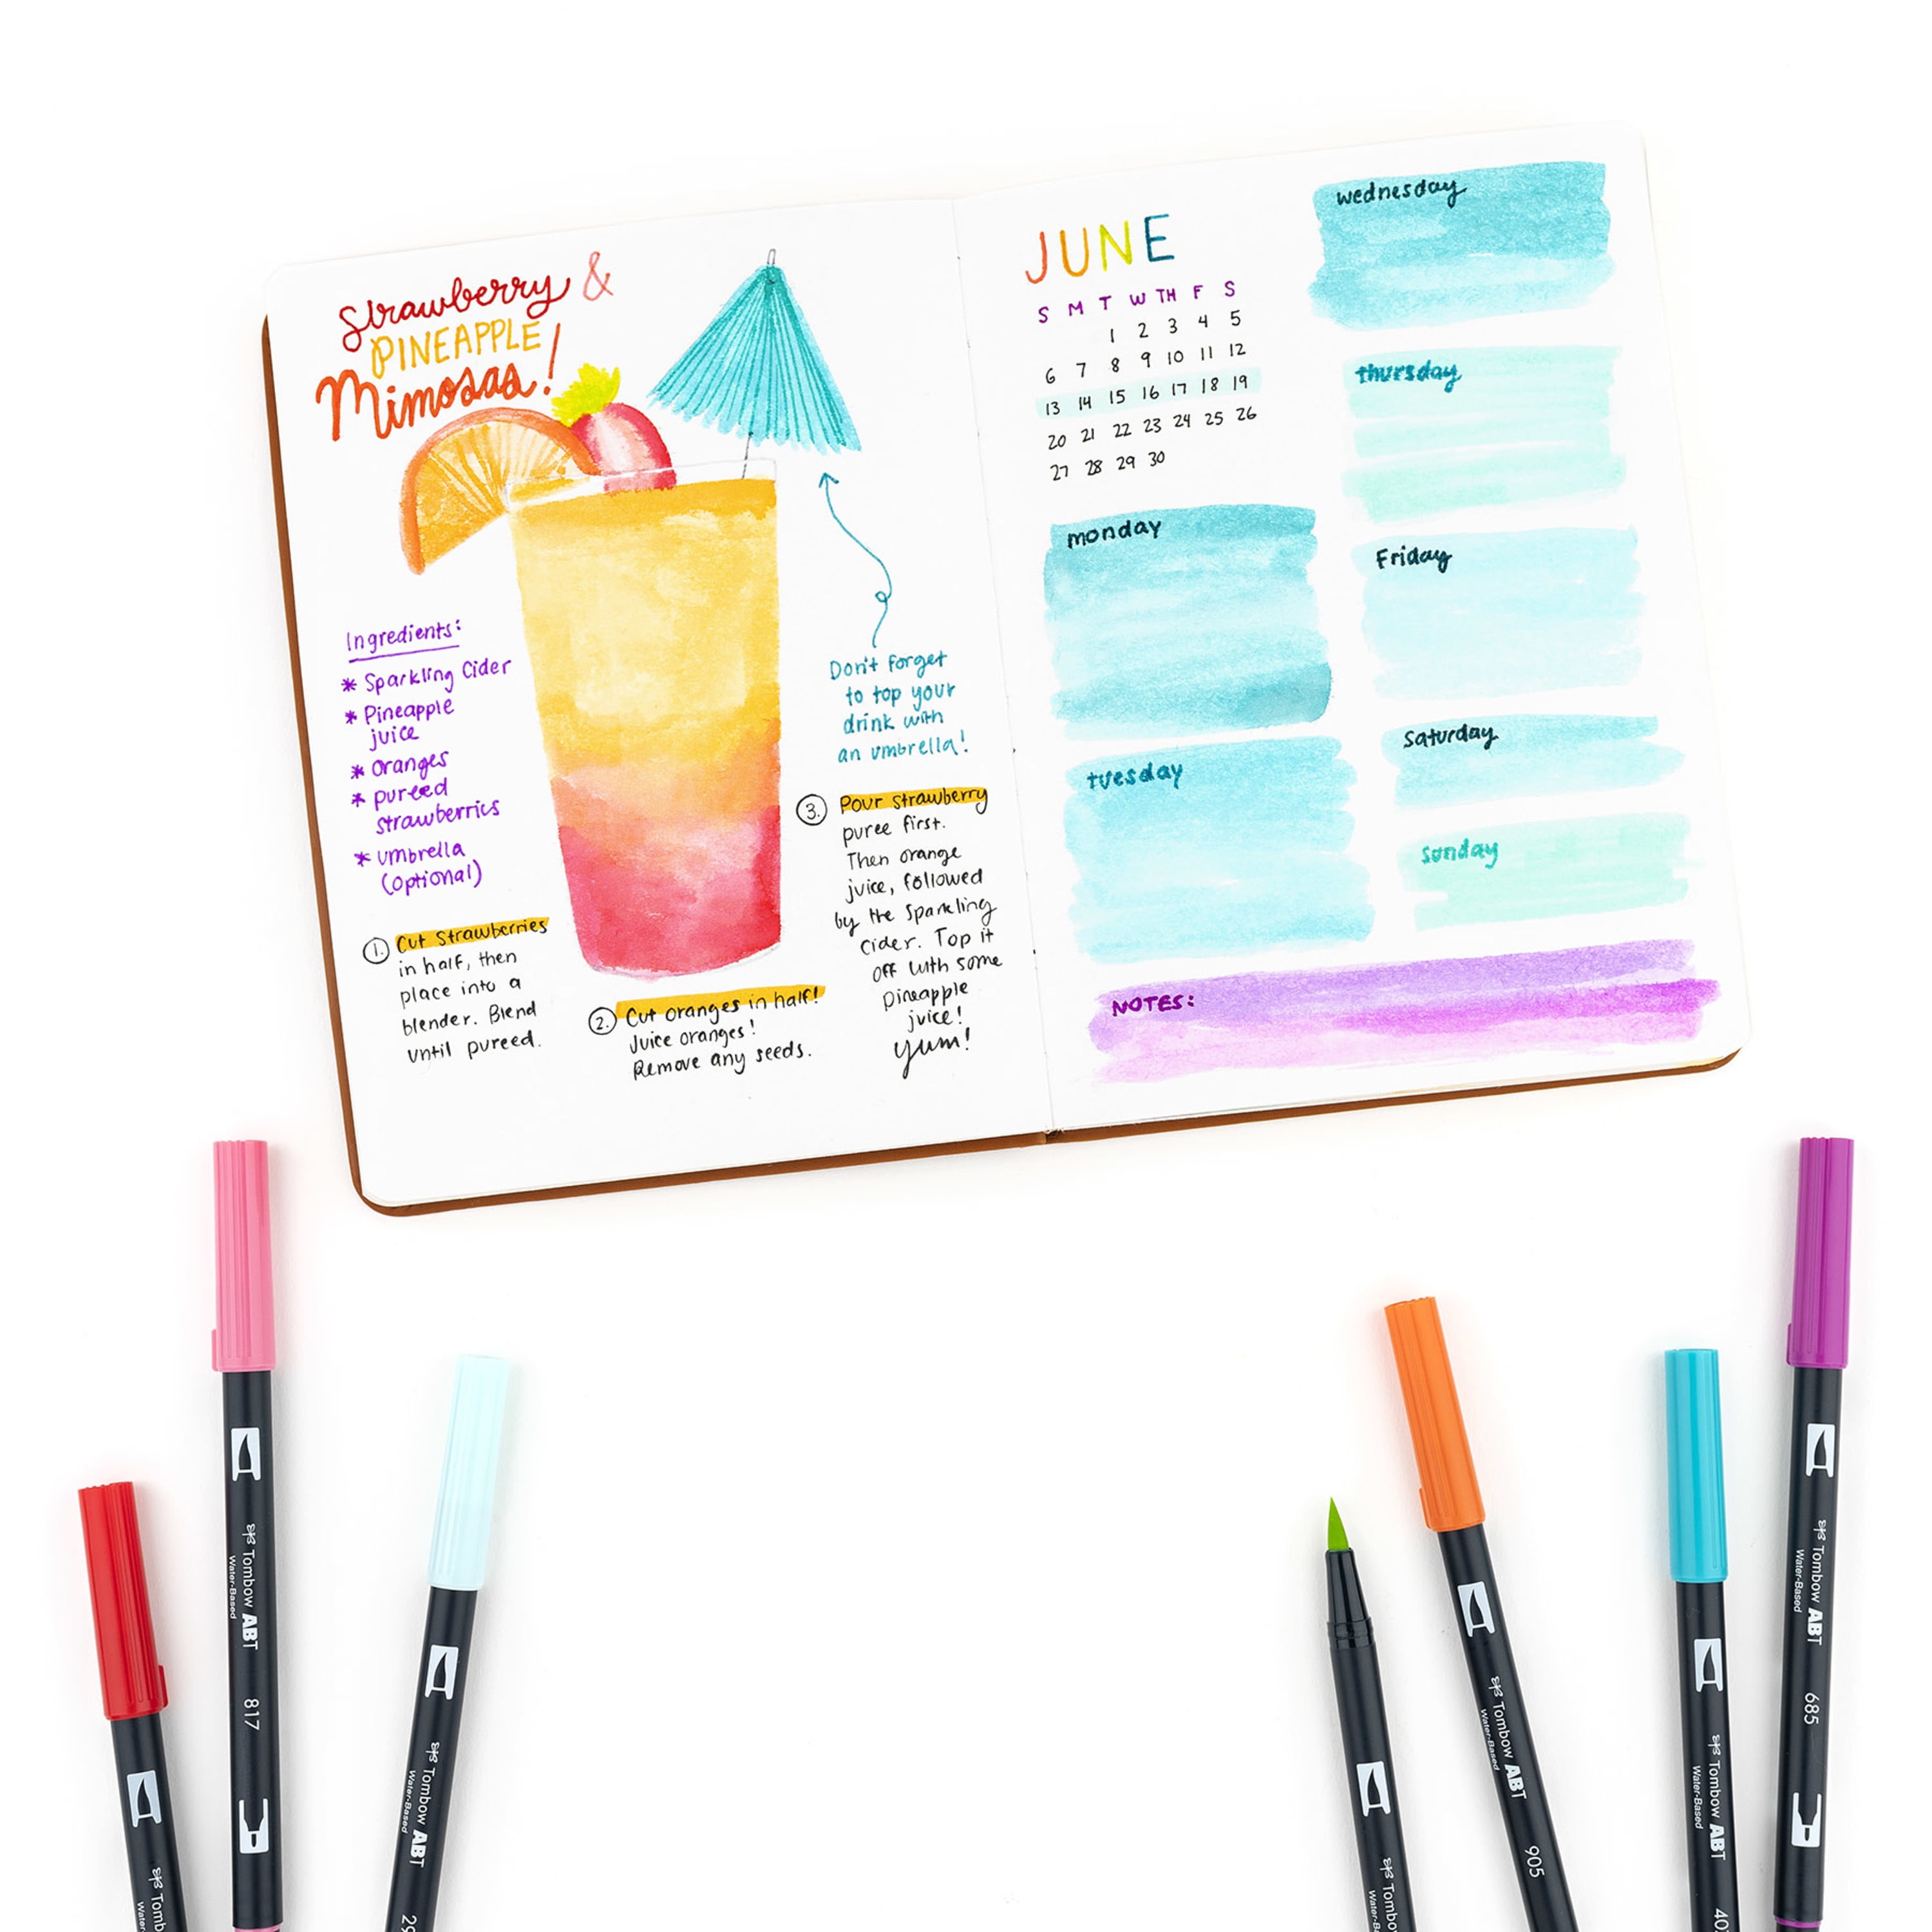 Strawberry &
PINEAPPLE
Mimosas!
Ingredients:
* Sparkling Cider
* Pineapple
juice
* oranges
* pureed
strawberries
* umbrella
(optional)
1. Cut Strawberries
in half, then
place into a
blender. Blend
until pureed.
2. Cut oranges in half!
Juice oranges!
Remove any seeds.
Don't forget
to top your
drink with
an umbrella!
3. Pour strawberry
puree first.
Then orange
juice, followed
by the Sparkling
Cider. Top it
off with some
pineapple
juice!
yum!
JUNE
S M T W TH F S
1 2 3 4 5
6 7 8 9 10 11 12
13 14 15 16 17 18 19
20 21 22 23 24 25 26
27 28 29 30
monday
tuesday
wednesday
thursday
Friday
Saturday
sunday
NOTES:
Tombow
Water-Based
Tombow ABT
Water-Based
817
Tombow ABT
Water-Based
Tombow
Tombow ABT
Water-Based
905
Tombow ABT
Water-Based
Tombow ABT
Water-Based
685